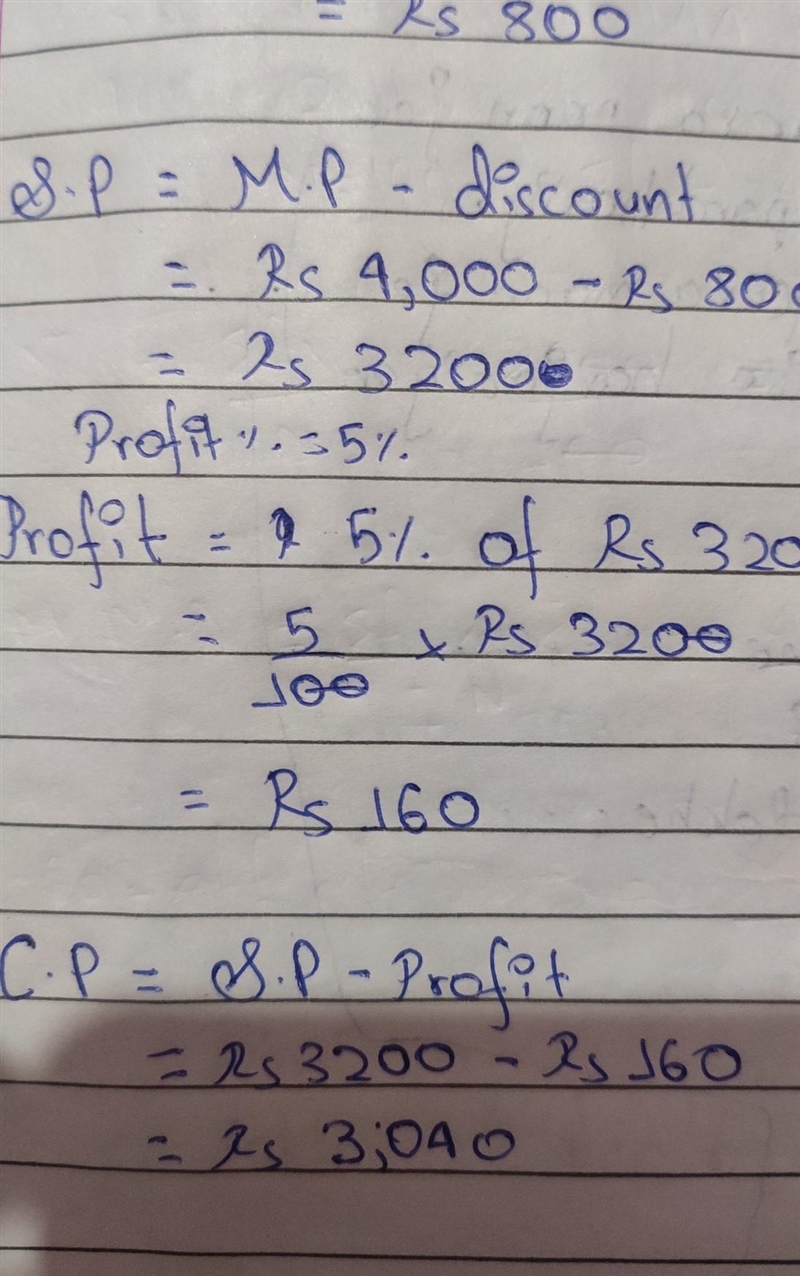 = Rs 800
S.P = M.P - discount
= Rs 4,000 - Rs 800
= Rs 3200
Profit % = 5%
Profit = 5% of Rs 320
= 5/100 × Rs 3200
= Rs 160
C.P = S.P - Profit
= Rs 3200 - Rs 160
= Rs 3,040